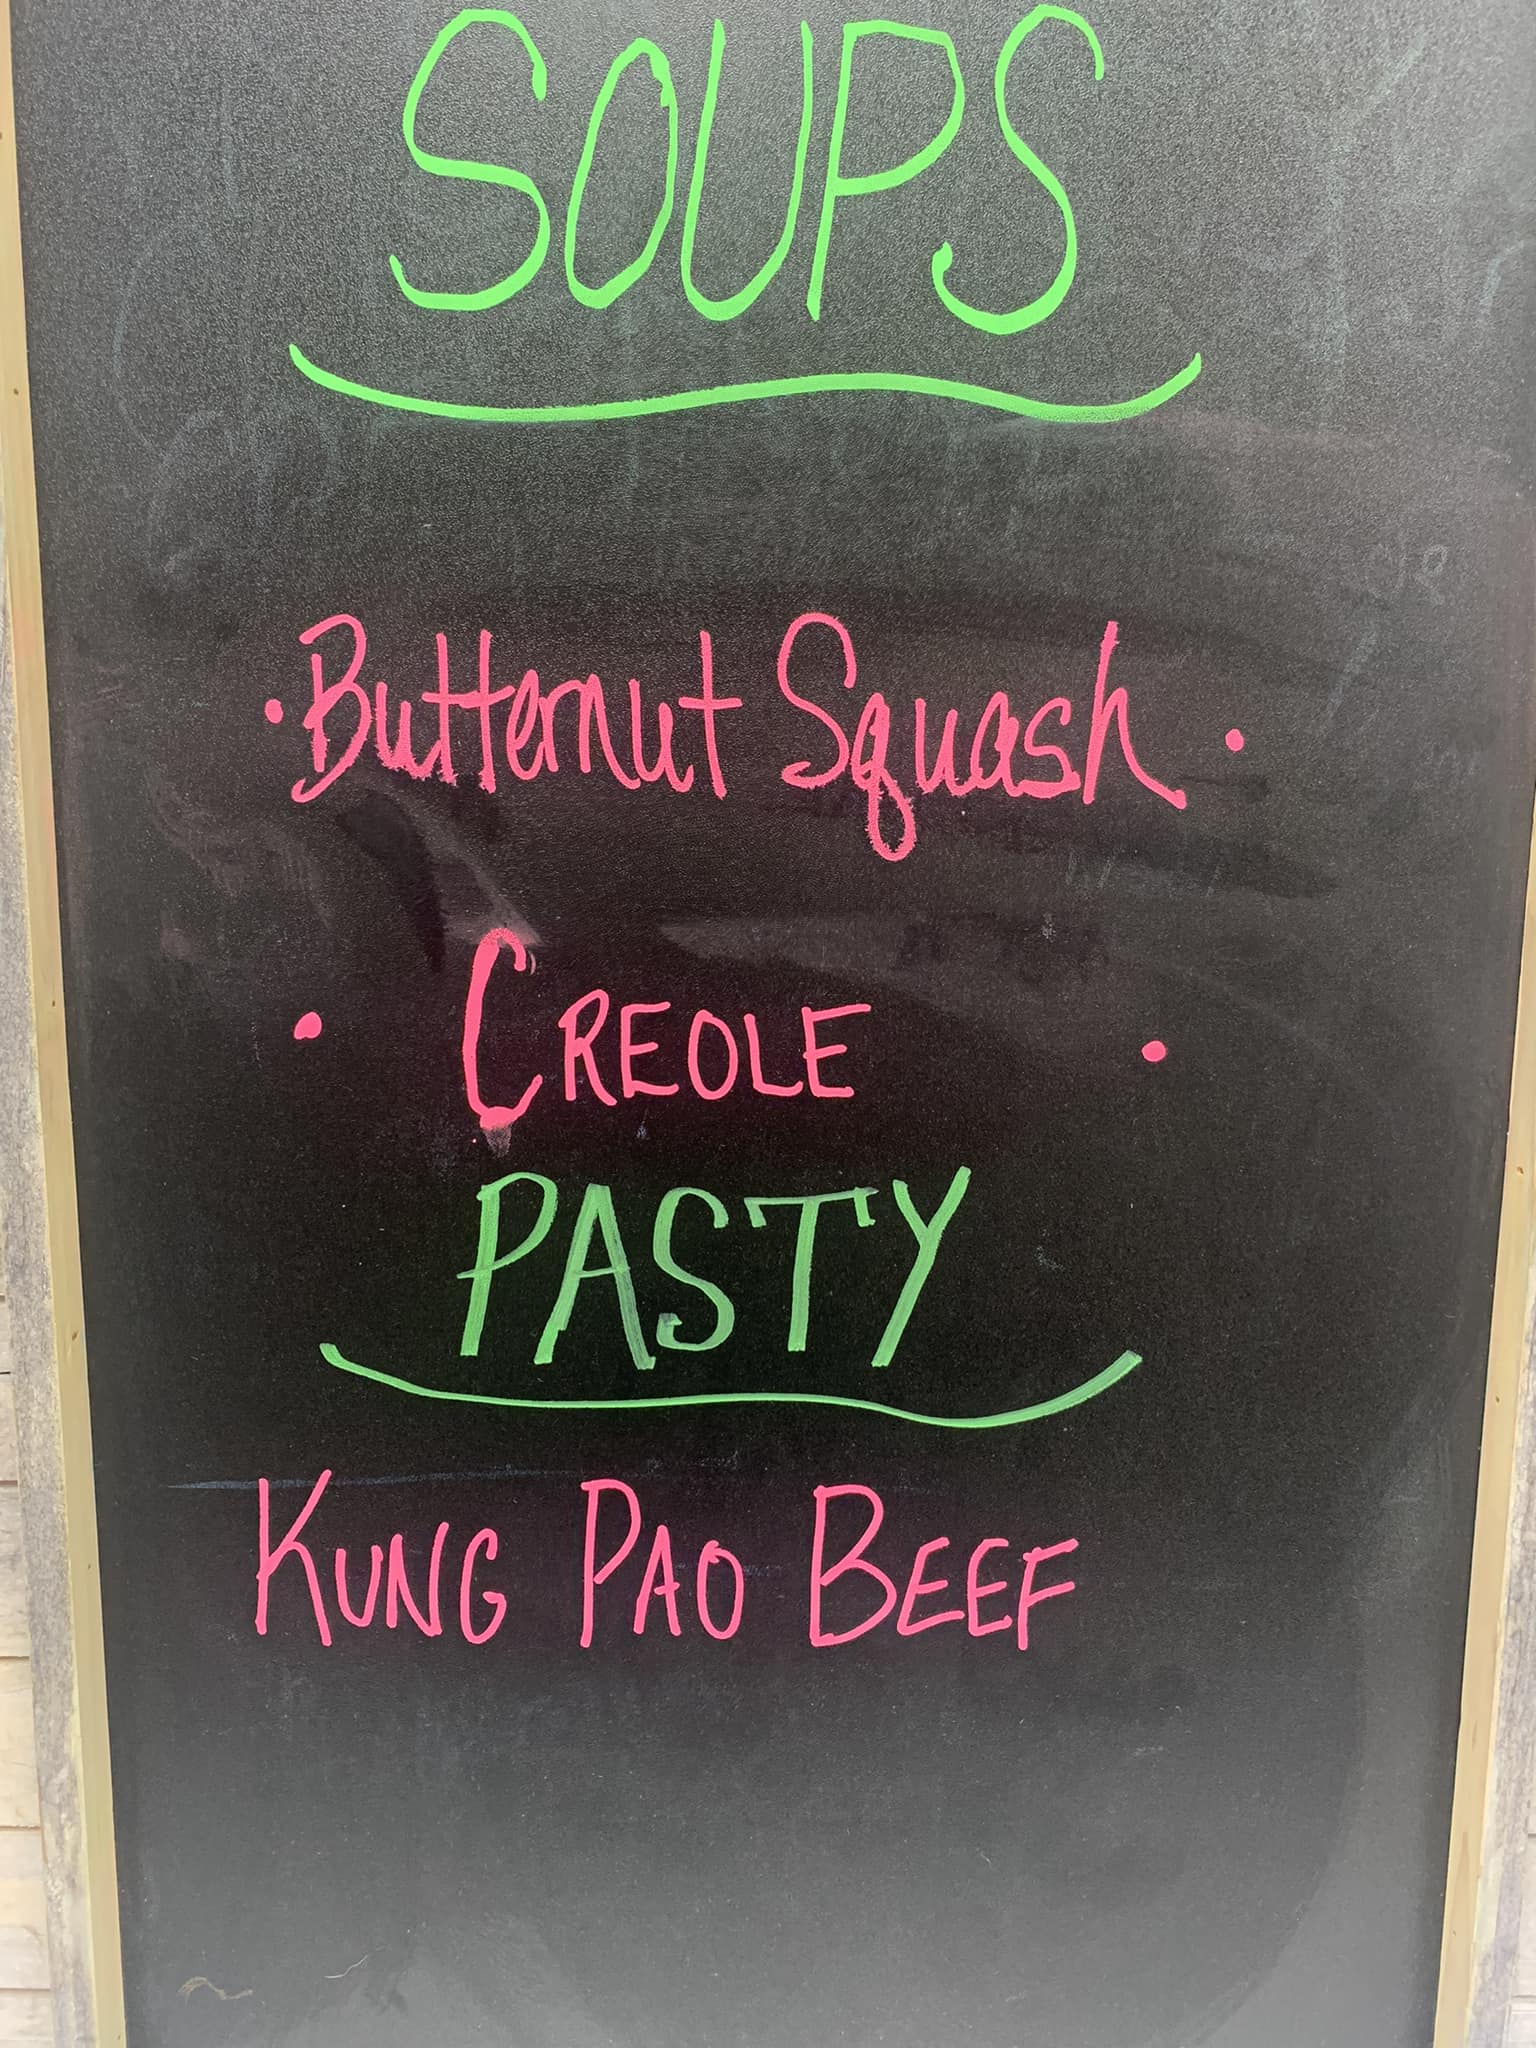 SOUPS
• Butternut Squash •
• CREOLE •
PASTY
KUNG PAO BEEF